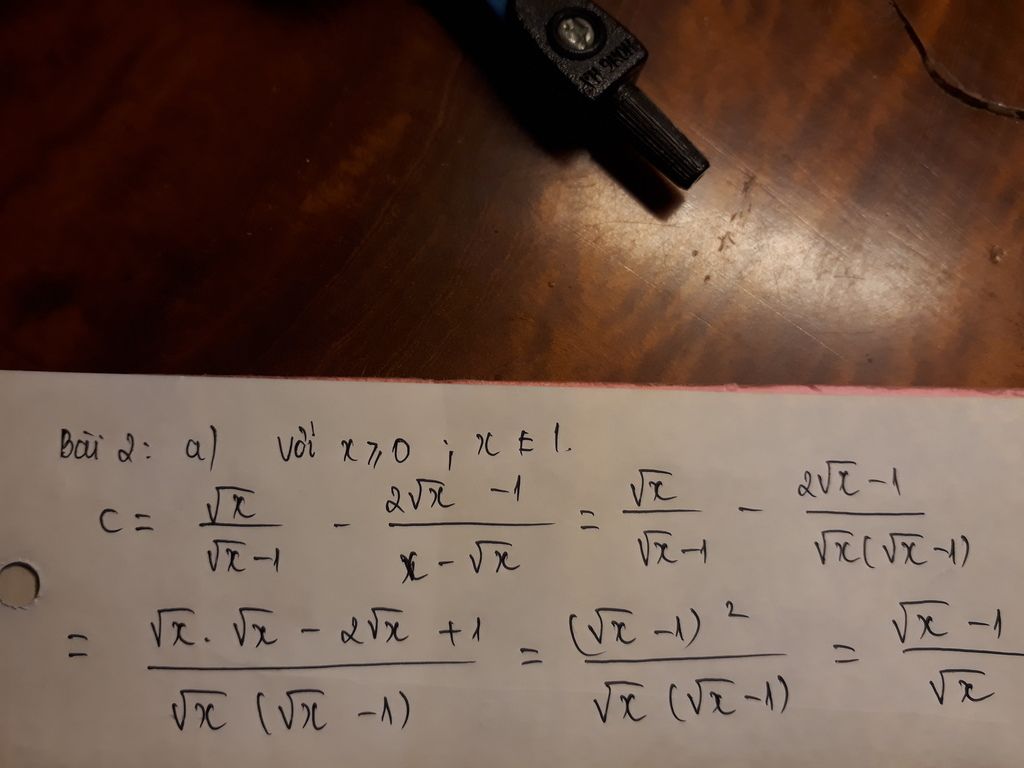 HONG HA
Bài 2: a) Với x ⩾ 0 ; x ∉ 1.
C = √x/(√x - 1) - (2√x - 1)/(x - √x) = √x/(√x - 1) - (2√x - 1)/(√x(√x - 1))
= (√x . √x - 2√x + 1)/(√x (√x - 1)) = (√x - 1)²/(√x (√x - 1)) = (√x - 1)/√x